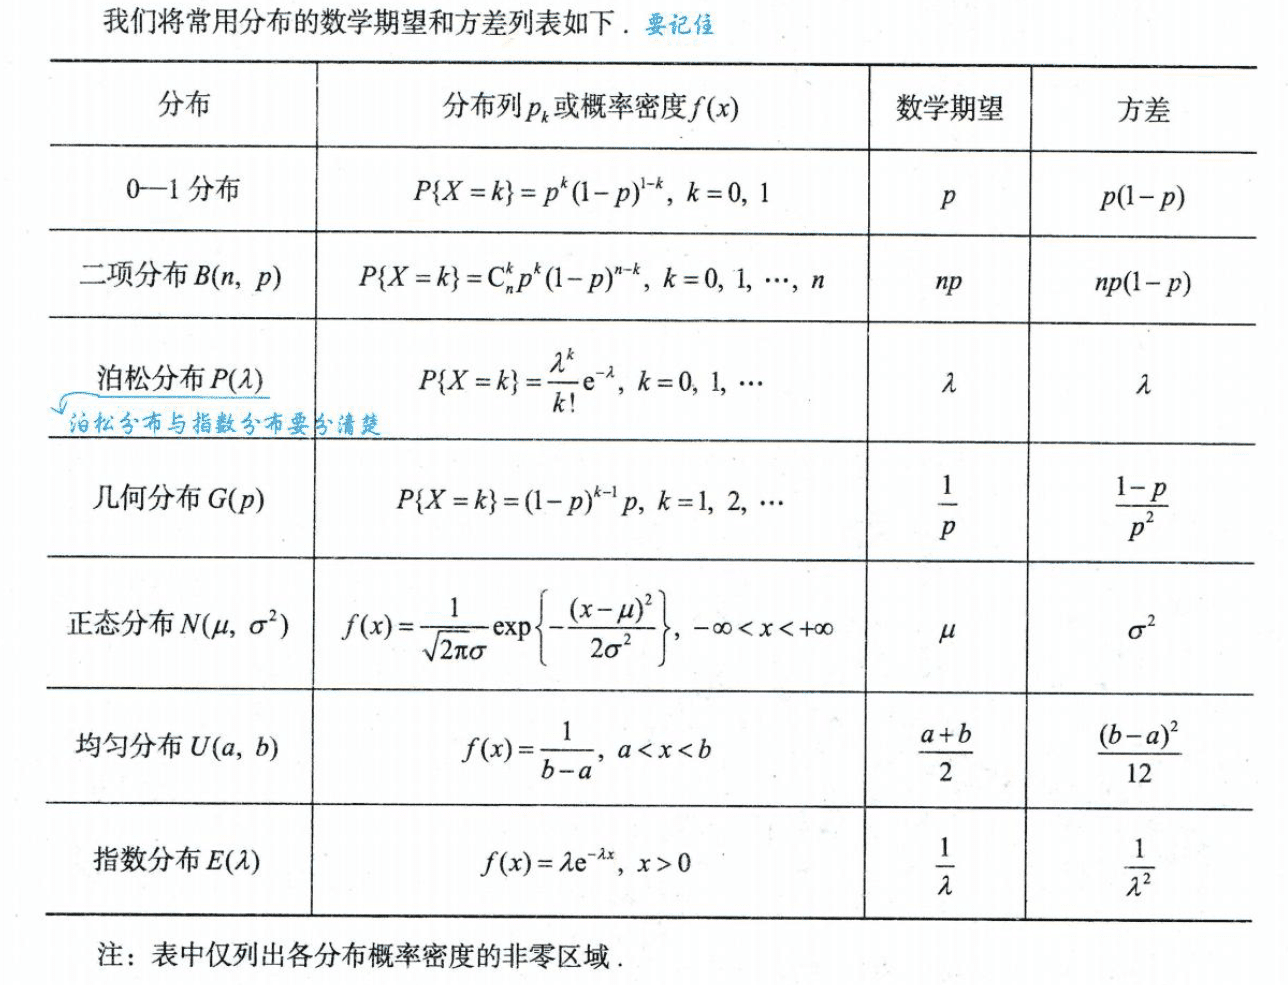 我们将常用分布的数学期望和方差列表如下. 要记住
分布 分布列 pₖ 或概率密度 f(x) 数学期望 方差
0—1 分布 P{X = k} = pᵏ(1 − p)¹⁻ᵏ, k = 0, 1 p p(1 − p)
二项分布 B(n, p) P{X = k} = Cₙᵏ pᵏ(1 − p)ⁿ⁻ᵏ, k = 0, 1, ⋯, n np np(1 − p)
泊松分布 P(λ) P{X = k} = λᵏ/k! e^(−λ), k = 0, 1, ⋯ λ λ
泊松分布与指数分布要分清楚
几何分布 G(p) P{X = k} = (1 − p)ᵏ⁻¹ p, k = 1, 2, ⋯ 1/p (1 − p)/p²
正态分布 N(μ, σ²) f(x) = 1/(√(2π)σ) exp{−(x − μ)²/(2σ²)}, −∞ < x < +∞ μ σ²
均匀分布 U(a, b) f(x) = 1/(b − a), a < x < b (a + b)/2 (b − a)²/12
指数分布 E(λ) f(x) = λe^(−λx), x > 0 1/λ 1/λ²
注: 表中仅列出各分布概率密度的非零区域.